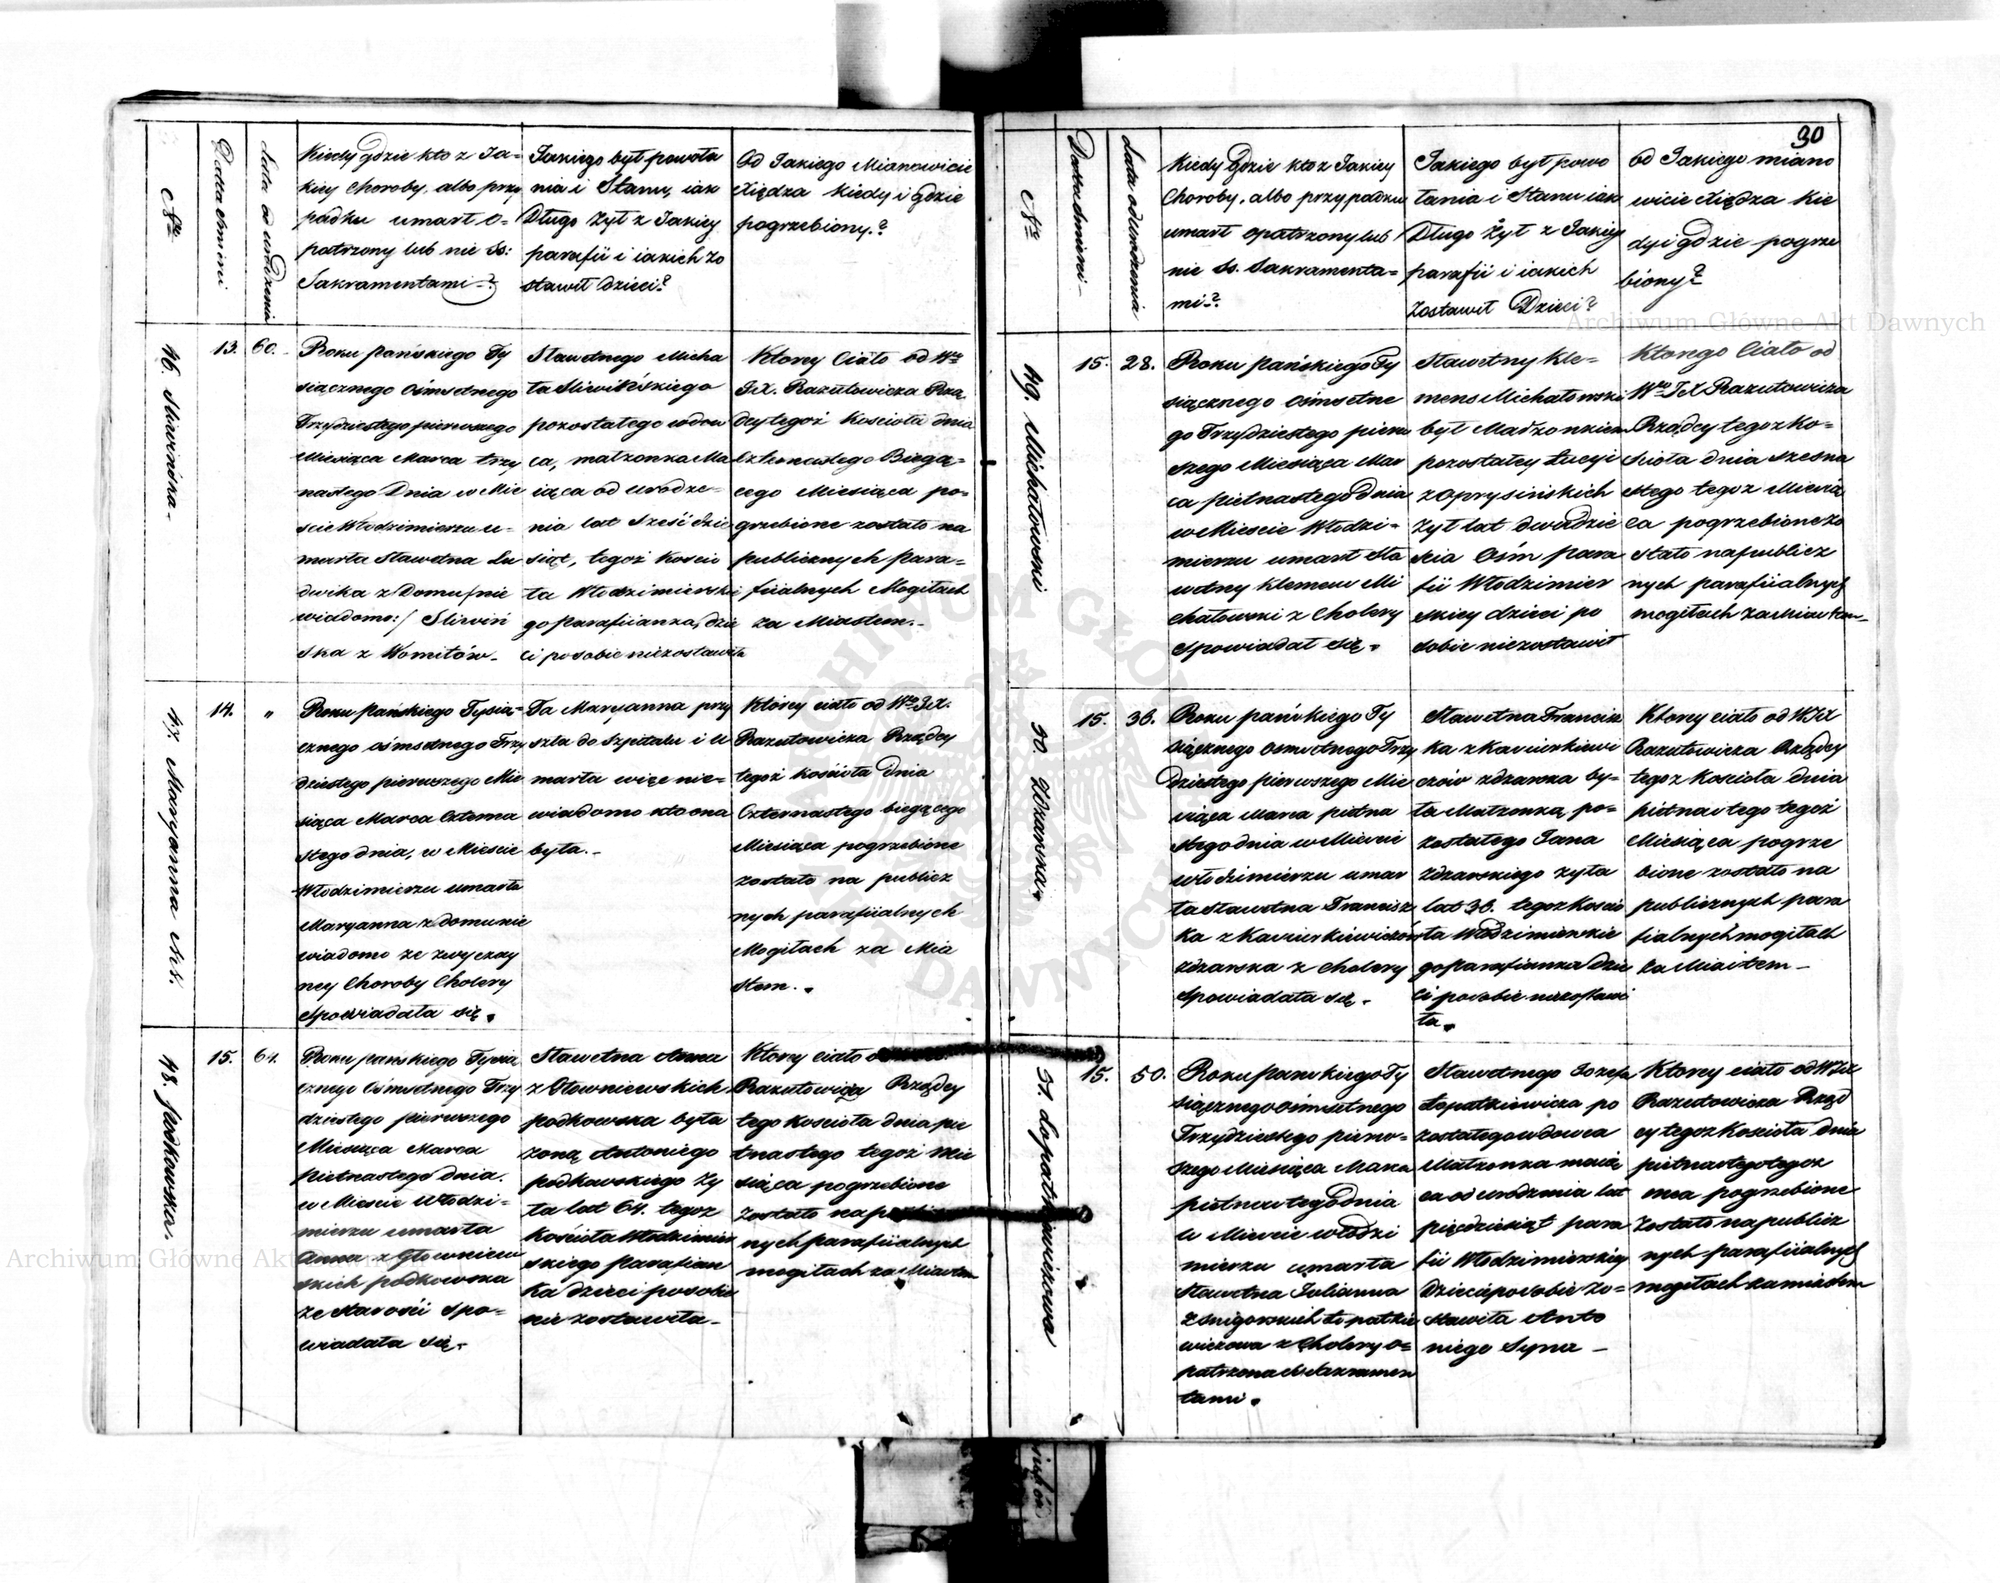 Nro
Datta śmierci
Lata od urodzenia
Kiedy gdzie kto z Ja=
kiey Choroby, albo przy
padku umarł o=
patrzony lub nie SS:
Sakramentami?
Jakiego był powoła
nia i Stanu, iak
Długo żył z Jakiey
parafii i iakich zo
stawił dzieci?
Od Jakiego Mianowicie
Xiędza kiedy i gdzie
pogrzebiony?
46. Sliwińska
13.
60.
Roku Pańskiego Ty
siącznego Osmsetnego
Trzydziestego pierwszego
Miesiąca Marca trzy
nastego Dnia w Mie
scie Włodzimierzu u=
marła Sławetna Lu
dwika z Domu /: nie
wiadomo :/ Sliwiń
ska z Womitów
Sławetnego Micha
ła Sliwińskiego
pozostałego wdow
ca, małżonka Ma
iąca od urodze=
nia lat Sześćdzie
siąt, tegoż Kościo
ła Włodzimierskie
go parafiianka, dzie
ci po sobie niezostawiła
Ktorey Ciało od Wgo
JX. Razutowicza Rzą
dcy tegoż Kościoła dnia
Czternastego Biegą=
cego Miesiąca po=
grzebione zostało na
publicznych Para=
fiialnych Mogiłach
za Miastem.
47. Maryanna
14.
"
Roku Pańskiego Tysią=
cznego Osmsetnego Trzy
dziestego pierwszego Mie
siąca Marca Czterna
stego dnia, w Mieście
Włodzimierzu umarła
Maryanna z domu nie
wiadomo ze zwyczay
ney Choroby Cholery
Spowiadała się.
Ta Maryanna przy
szła do Szpitalu i u
marła więc nie=
wiadomo kto ona
była.
Ktorey ciało od Wgo JX.
Razutowicza Rządcy
tegoż Kościoła dnia
Czternastego biegącego
Miesiąca pogrzebione
zostało na publicz
nych parafiialnych
Mogiłach za Mia
stem.
48. Podkowska
15.
64.
Roku pańskiego Tysią
cznego Osmsetnego Trzy
dziestego pierwszego
Miesiąca Marca
Piętnastego dnia
w Mieście Włodzi=
mierzu umarła
Anna z Głowniew
skich podkowska
ze starości Spo=
wiadała się.
Sławetna Anna
z Głowniewskich
podkowska była
żoną Antoniego
podkowskiego ży
ła lat 64. tegoż
Kościoła Włodzimier
skiego parafian
ka dzieci po sobie
nie zostawiła
Ktorey ciało
Razutowiczy Rządcy
tego Kościoła dnia pię
tnastego tegoż Mie
siąca pogrzebione
zostało na pu
nych parafiialnych
mogiłach za Miastem
30
Nro
Datta śmierci
Lata od urodzenia
Kiedy Gdzie kto z Jakiey
Choroby, albo przypadku
umarł opatrzony lub
nie SS. Sakramenta=
mi?
Jakiego był powo
łania i Stanu iak
Długo Żył z Jakiey
parafii i iakich
zostawił Dzieci?
od Jakiego miano
wicie Xiędza Kie
dy i gdzie pogrze
biony?
49. Michałowski
15.
28.
Roku pańskiego Ty
siącznego osmsetne
go Trzydziestego pierw
szego Miesiąca Mar
ca piętnastego Dnia
w Mieście Włodzi=
mierzu umarł Sła
wetny Klemens Mi
chałowski z Cholery
Spowiadał się.
Sławetny Kle=
mens Michałowski
był Małżonkiem
pozostałey Łucyi
z Oprysińskich
żył lat dwadzie
scia Ośm para
fii Włodzimier
skiey dzieci po
sobie niezostawił
Ktorego Ciało od
Wgo JX Razutowicza
Rządcy tegoż Ko=
ścioła dnia szesna
stego tegoż Miesią
ca pogrzebione zo
stało na publicz
nych parafiialnych
mogiłach za Miastem
50. Zdzarska
15.
36.
Roku pańskiego Ty
siącznego osmsetnego Trzy
dziestego pierwszego Mie
siąca Marca piętna
stego dnia w Mieście
Włodzimierzu umar
ła Sławetna Francisz
ka z Kacierkiewiczow
zdzarska z cholery
Spowiadała się.
Sławetna Francisz
ka z Kacierkiewi
czow zdzarska by=
ła Małżonką po=
zostałego Jana
zdzarskiego żyła
lat 36. tegoż Kościo
ła Włodzimierskie
go Parafianka Dzie
ci po sobie niezostawi
ła.
Ktorey ciało od WJX
Razutowicza Rządcy
tegoż Kościoła dnia
piętnastego tegoż
Miesiąca pogrze
bione zostało na
publicznych para
fialnych mogiłach
za Miastem
51. Łopatkiewiczowa
15.
50.
Roku pańskiego Ty
siącznego ośmsetnego
Trzydziestego pierw=
szego Miesiąca Marca
piętnastego dnia
w Mieście Włodzi
mierzu umarła
Sławetna Julianna
z Łopatkie
wiczowa z Cholery o=
patrzona SS. Sakramen
tami.
Sławetnego Jozefa
Łopatkiewicza po
zostałego wdowca
Małżonka maią
ca od urodzenia lat
pięćdziesiąt para
fii Włodzimierskiey
Dzieci po sobie zo=
stawiła Anto
niego Syna
Ktorey ciało od WJX
Razutowicza Rząd
cy tegoż Kościoła dnia
piętnastego tegoż
mca pogrzebione
zostało na publicz
nych parafiialnych
mogiłach za miastem
Archiwum Główne Akt Dawnych
Archiwum Główne Akt Dawnych